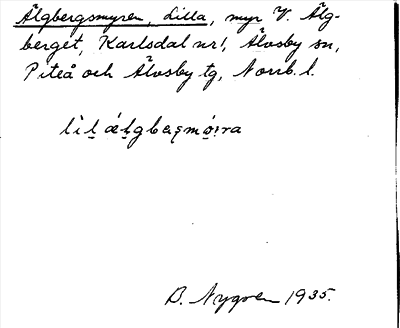 Älgbergsmyren, Lilla, myr V. Älg-
berget, Karlsdal nr 1, Älvsby sn,
Piteå och Älvsby tg, Norrb. l.
B. Nygren 1935.